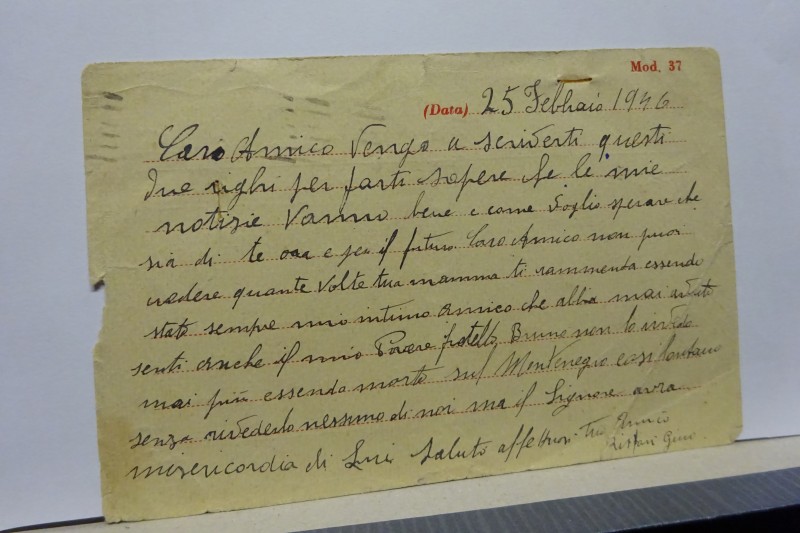 Mod. 37
(Data) 25 Febbraio 1946
Caro Amico Vengo a scriverti questi
due righi per farti sapere che le mie
notizie Vanno bene e come Voglio sperare che
sia di te ora e per il futuro Caro Amico non puoi
credere quante Volte tua mamma ti rammenta essendo
stato sempre mio intimo Amico che abbia mai avuto
senti anche il mio Povero fratello Bruno non lo
mai più essendo morto sul Montenegro così lontano
senza rivederlo nessuno di noi ma il Signore avra
misericordia di Lui Saluto affettuosi tuo Amico
Gino